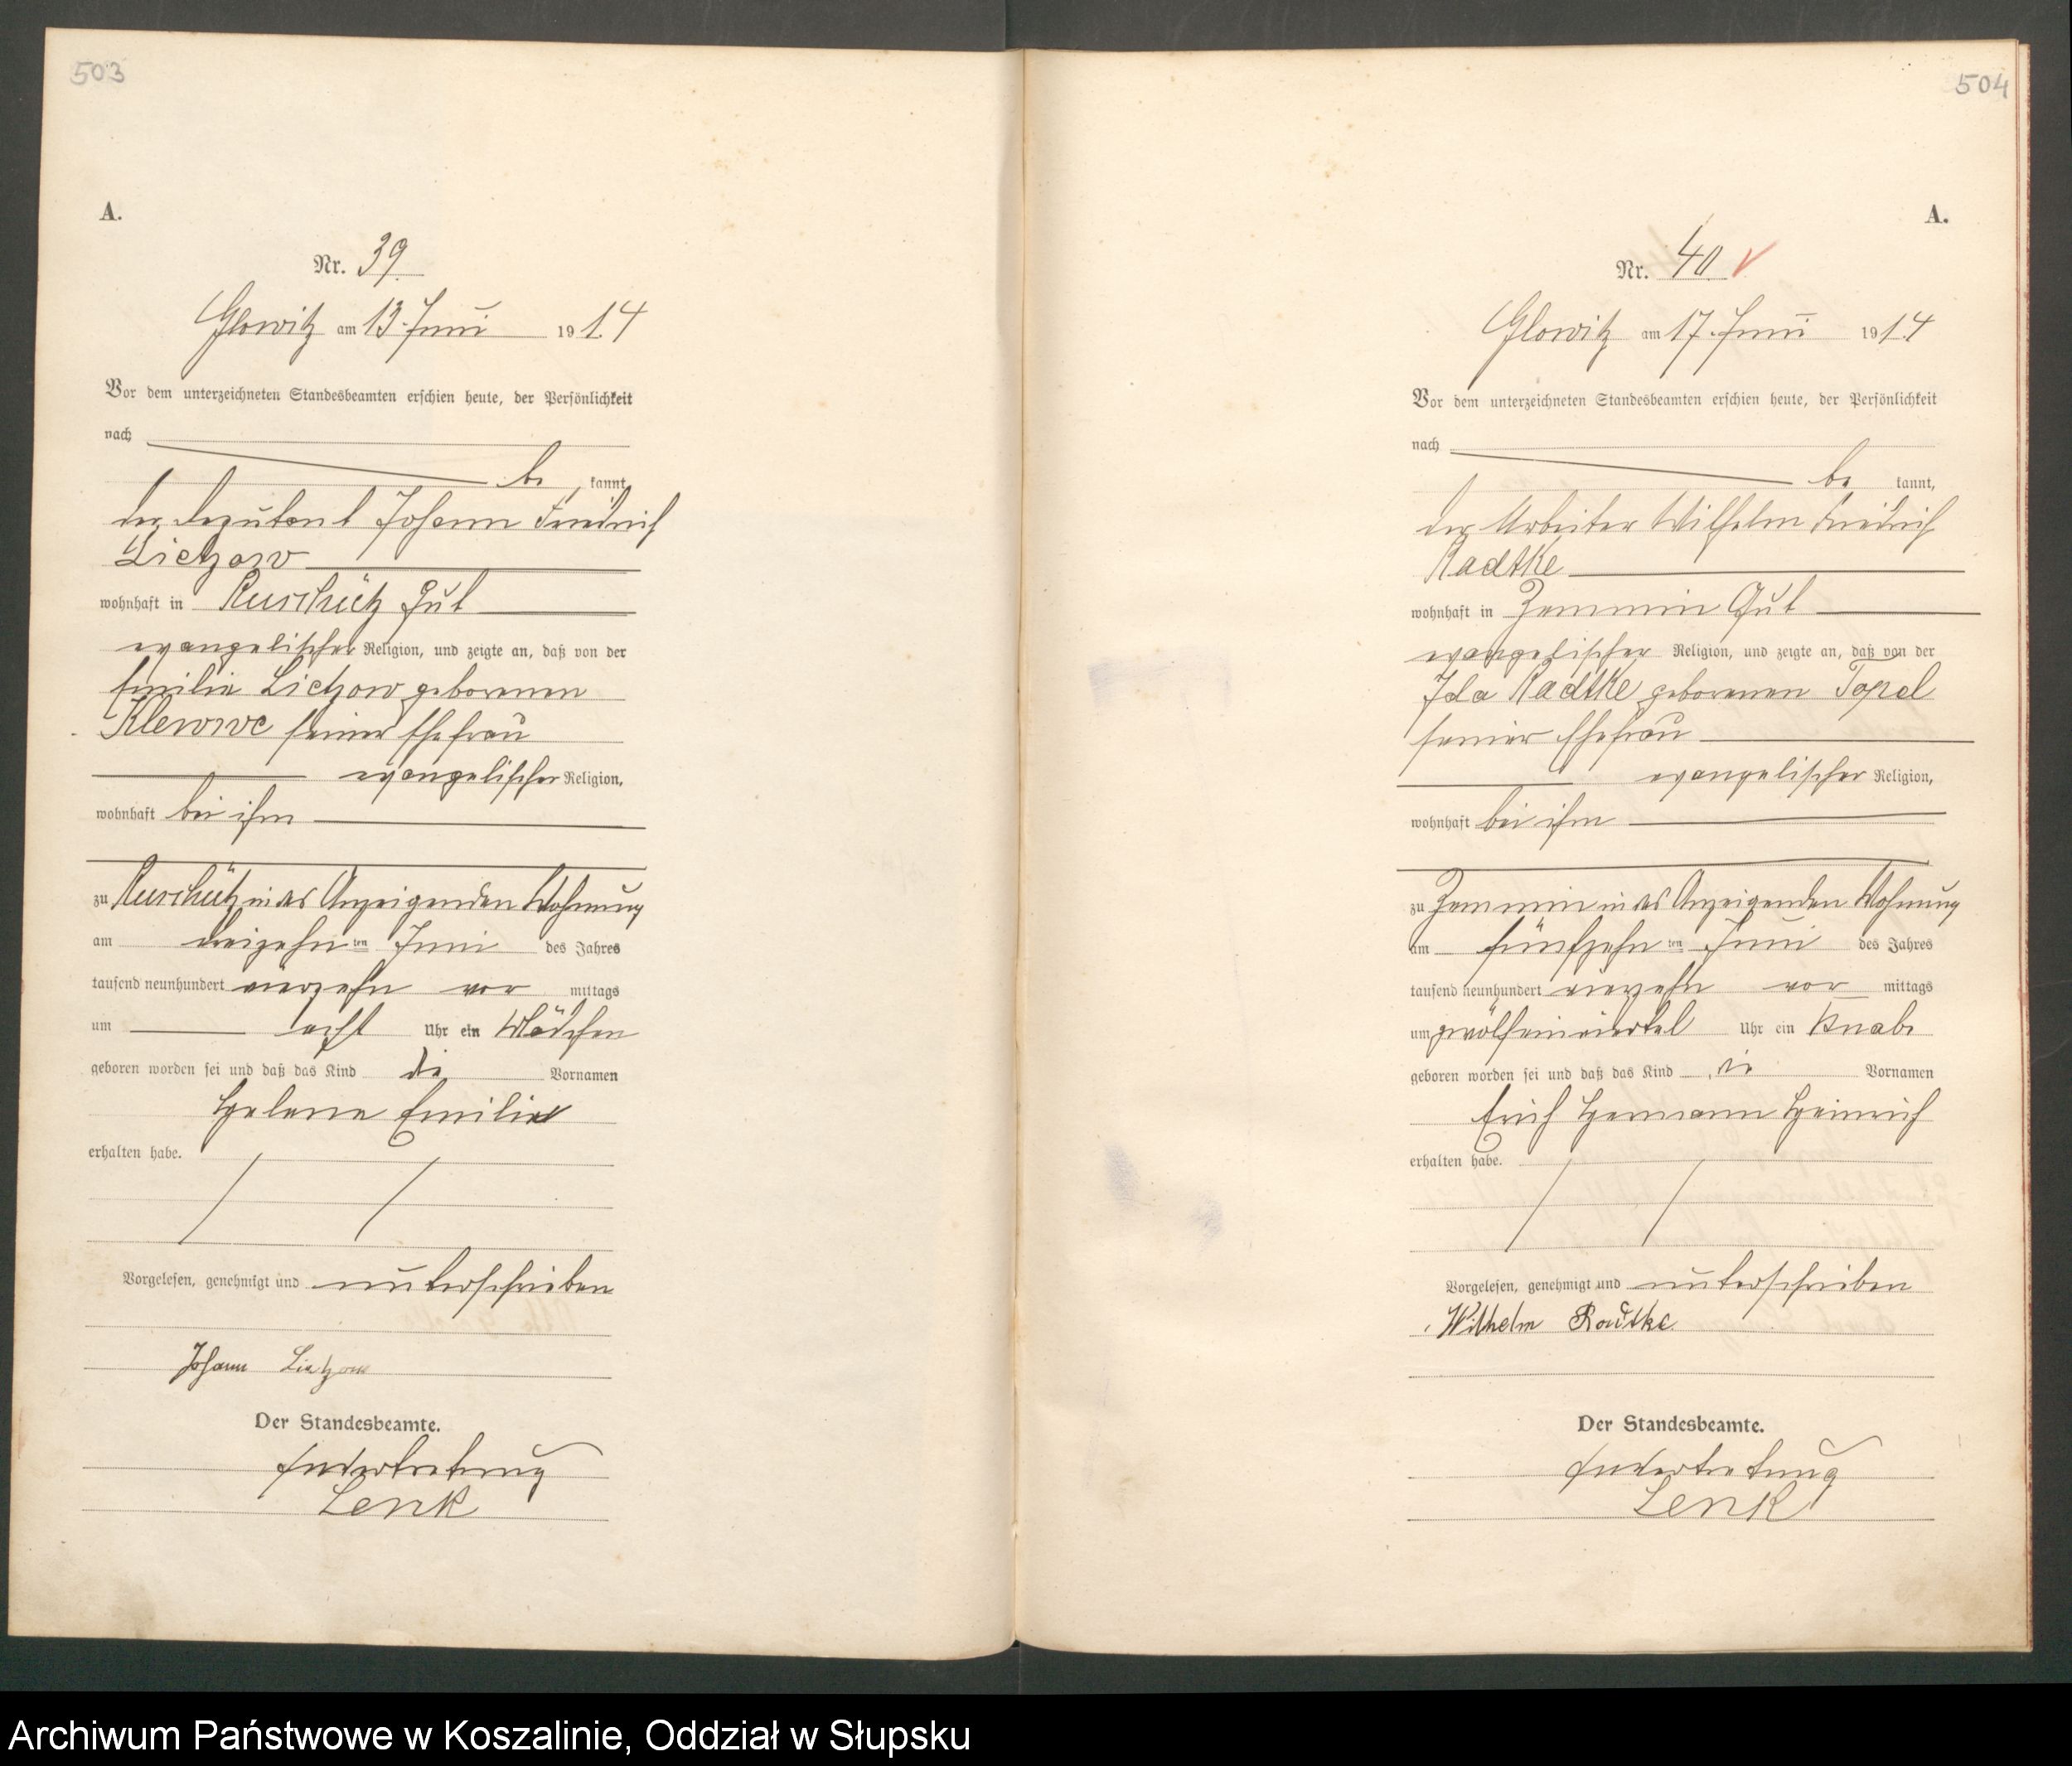 503
A.
Nr. 39.
Glowitz am 13. Juni 1914
Vor dem unterzeichneten Standesbeamten erschien heute, der Persönlichkeit
nach
be kannt,
der Deputant Johann Friedrich
Lietzow
wohnhaft in Ruschütz Gut
evangelischer Religion, und zeigte an, daß von der
Emilie Lietzow geborenen
Klewwe seiner Ehefrau
evangelischer Religion,
wohnhaft bei ihm
zu Ruschütz in des Anzeigenden Wohnung
am dreizehn ten Juni des Jahres
tausend neunhundert vierzehn vor mittags
um acht Uhr ein Mädchen
geboren worden sei und daß das Kind die Vornamen
Helene Emilie
erhalten habe.
Vorgelesen, genehmigt und unterschrieben
Johann Lietzow
Der Standesbeamte.
In Vertretung
Lenk
504
A.
Nr. 40
Glowitz am 17. Juni 1914
Vor dem unterzeichneten Standesbeamten erschien heute, der Persönlichkeit
nach
be kannt,
der Arbeiter Wilhelm Friedrich
Radtke
wohnhaft in Zemmin Gut
evangelischer Religion, und zeigte an, daß von der
Ida Radtke geborenen Topel
seiner Ehefrau
evangelischer Religion,
wohnhaft bei ihm
zu Zemmin in des Anzeigenden Wohnung
am fünfzehn ten Juni des Jahres
tausend neunhundert vierzehn vor mittags
um zwölfeinviertel Uhr ein Knabe
geboren worden sei und daß das Kind die Vornamen
Erich Hermann Heinrich
erhalten habe.
Vorgelesen, genehmigt und unterschrieben
Wilhelm Radtke
Der Standesbeamte.
In Vertretung
Lenk
Archiwum Państwowe w Koszalinie, Oddział w Słupsku